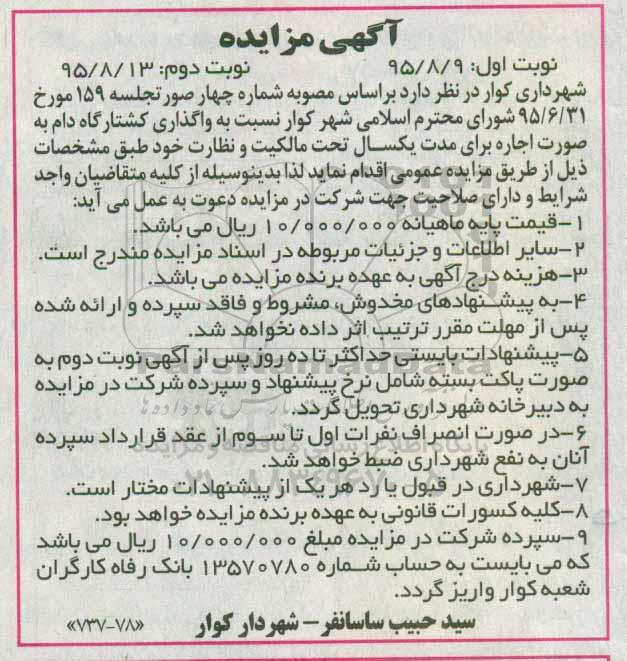 آگهی مزایده
نوبت اول: ۹۵/۸/۹ نوبت دوم: ۹۵/۸/۱۳
شهرداری کوار در نظر دارد براساس مصوبه شماره چهار صورتجلسه ۱۵۹ مورخ
۹۵/۶/۳۱ شورای محترم اسلامی شهر کوار نسبت به واگذاری کشتارگاه دام به
صورت اجاره برای مدت یکسال تحت مالکیت و نظارت خود طبق مشخصات
ذیل از طریق مزایده عمومی اقدام نماید لذا بدینوسیله از کلیه متقاضیان واجد
شرایط و دارای صلاحیت جهت شرکت در مزایده دعوت به عمل می آید:
۱-قیمت پایه ماهیانه ۱۰/۰۰۰/۰۰۰ ریال می باشد.
۲-سایر اطلاعات و جزئیات مربوطه در اسناد مزایده مندرج است.
۳-هزینه درج آگهی به عهده برنده مزایده می باشد.
۴-به پیشنهادهای مخدوش، مشروط و فاقد سپرده و ارائه شده
پس از مهلت مقرر ترتیب اثر داده نخواهد شد.
۵-پیشنهادات بایستی حداکثر تا ده روز پس از آگهی نوبت دوم به
صورت پاکت بسته شامل نرخ پیشنهاد و سپرده شرکت در مزایده
به دبیرخانه شهرداری تحویل گردد.
۶-در صورت انصراف نفرات اول تا سوم از عقد قرارداد سپرده
آنان به نفع شهرداری ضبط خواهد شد.
۷-شهرداری در قبول یا رد هر یک از پیشنهادات مختار است.
۸-کلیه کسورات قانونی به عهده برنده مزایده خواهد بود.
۹-سپرده شرکت در مزایده مبلغ ۱۰/۰۰۰/۰۰۰ ریال می باشد
که می بایست به حساب شماره ۱۳۵۷۰۷۸۰ بانک رفاه کارگران
شعبه کوار واریز گردد.
سید حبیب ساسانفر – شهردار کوار «۷۳۷-۷۸»
ParsNamadData
پایگاه اطلاع رسانی مناقصه و مزایده